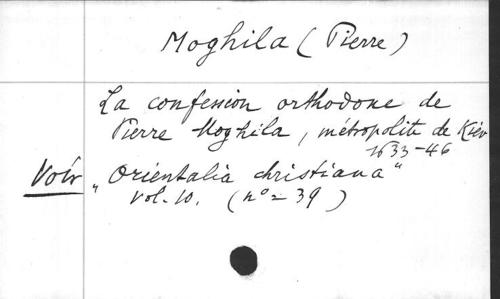 Moghila (Pierre)
La confession orthodoxe de
Pierre Moghila, métropolite de Kiev
1633-46
Voir „Orientalia christiana“
vol. 10. (n° = 39)